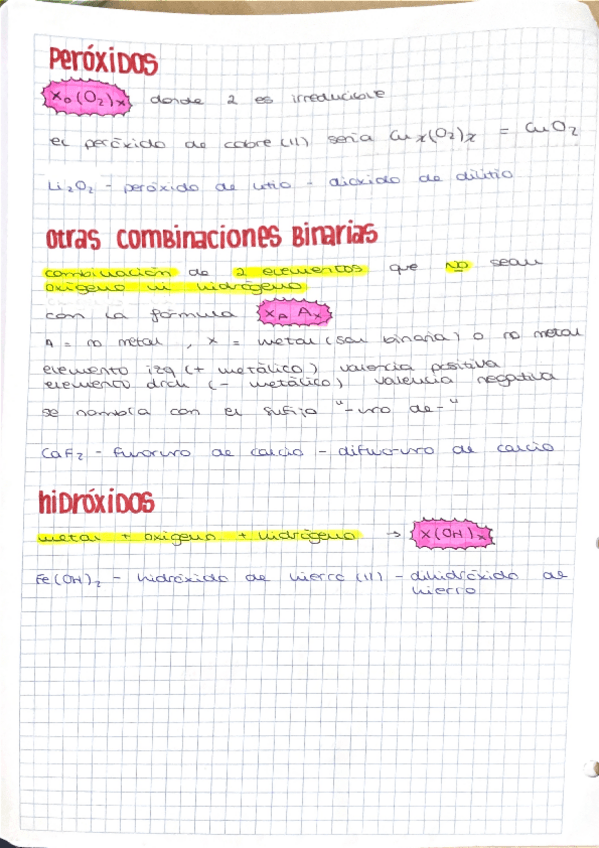 Peróxidos
X₀(O₂)ₓ donde 2 es irreducible
el peróxido de cobre (II) seria Cu₂(O₂)₂ = CuO₂
Li₂O₂ - peróxido de litio - dióxido de dilitio
Otras combinaciones binarias
combinación de 2 elementos que NO sean
oxígeno ni hidrógeno
con la fórmula Xₐ Aₓ
A = no metal, X = metal (sal binaria) o no metal
elemento izq (+ metálico) valencia positiva
elemento drch (- metálico) valencia negativa
se nombra con el sufijo "-uro de-"
CaF₂ - fluoruro de calcio - difluoruro de calcio
hidróxidos
metal + oxígeno + hidrógeno → X(OH)ₓ
Fe(OH)₂ - hidróxido de hierro (II) - dihidróxido de
hierro